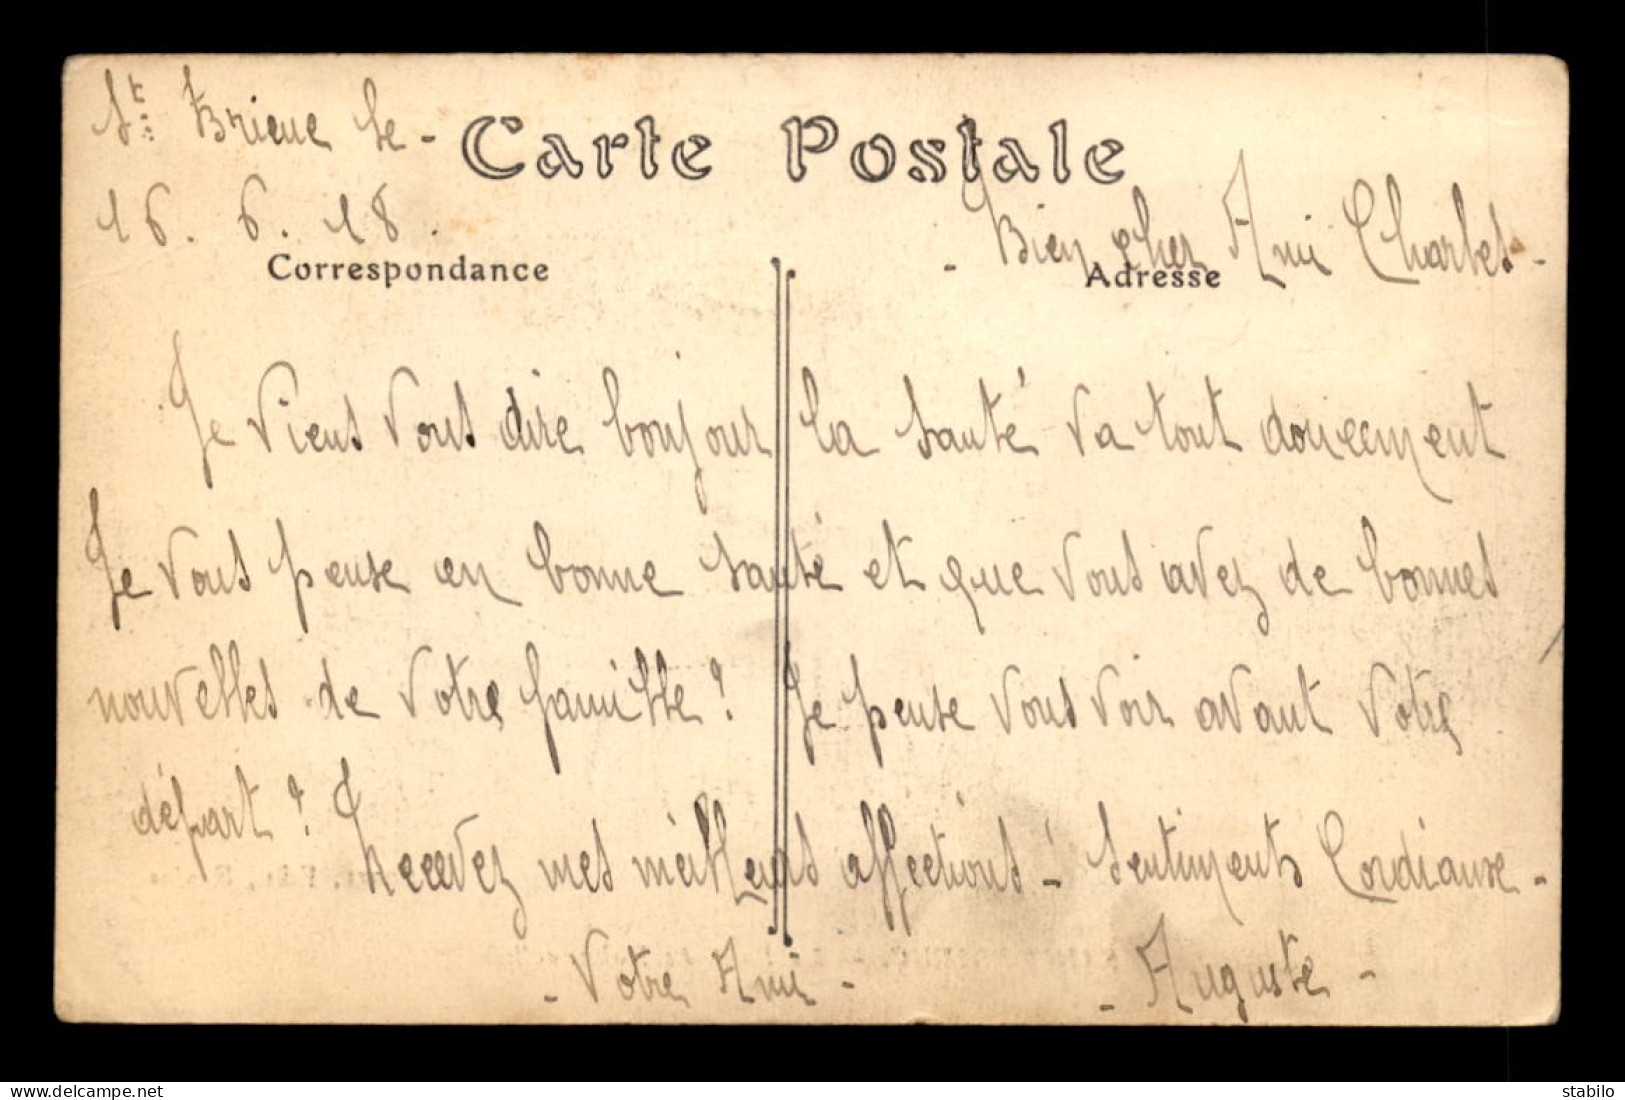 St Brieuc le -
Carte Postale
16. 6. 18.
- Bien cher Ami Charles -
Correspondance
Adresse
Je viens vous dire bonjour la santé va tout doucement
Je vous pense en bonne santé et que vous avez de bonnes
nouvelles de votre famille? Je pense vous voir avant votre
départ? Recevez mes meilleurs affections - sentiments Cordiaux -
- Votre Ami - - Auguste -
www.delcampe.net
stabilo